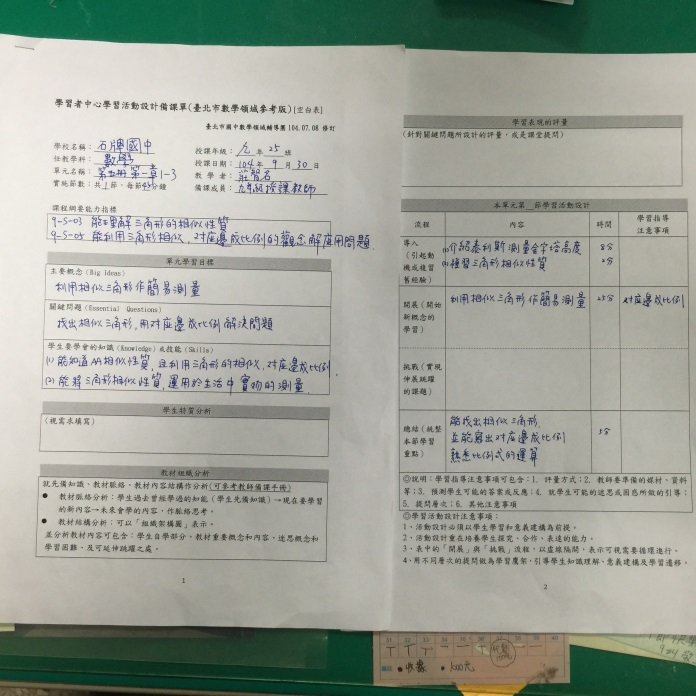 學習者中心學習活動設計備課單(臺北市數學領域參考版)[空白表]
臺北市國中數學領域輔導團 104.07.08 修訂
學校名稱：石牌國中 授課年級：九 年 25 班
任教學科：數學 授課日期：104 年 9 月 30 日
單元名稱：第五冊第一章1-3 教學者：莊智名
實施節數：共 1 節，每節 45 分鐘 備課成員：九年級授課教師
課程綱要能力指標
9-S-03 能理解三角形的相似性質
9-S-05 能利用三角形相似，對應邊成比例的觀念解應用問題
單元學習目標
主要概念(Big Ideas)
利用相似三角形作簡易測量
關鍵問題(Essential Questions)
找出相似三角形，用對應邊成比例解決問題
學生要學會的知識(Knowledge)或技能(Skills)
(1) 能知道AA相似性質，且利用三角形的相似，對應邊成比例
(2) 能將三角形相似性質，運用於生活中實物的測量
學生特質分析
(視需求填寫)
教材組織分析
就先備知識、教材脈絡、教材內容結構作分析(可參考教師備課手冊)
● 教材脈絡分析：學生過去曾經學過的知能(學生先備知識)→現在要學習
的新內容→未來會學的內容，作脈絡思考。
● 教材結構分析：可以「組織架構圖」表示。
並分析教材內容可包含：學生自學部分、教材重要概念和內容、迷思概念和
學習困難、及可延伸跳躍之處。
1
學習表現的評量
(針對關鍵問題所設計的評量，或是課堂提問)
本單元第_節學習活動設計
流程 內容 時間 學習指導
注意事項
導入
(引起動
機或複習
舊經驗)
(1)介紹泰利斯測量金字塔高度 8分
(2)複習三角形相似性質 2分
開展(開始
新概念的
學習)
利用相似三角形作簡易測量 25分 對應邊成比例
挑戰(實現
伸展跳躍
的課題)
總結(統整
本節學習
重點)
能找出相似三角形
並能寫出對應邊成比例 5分
熟悉比例式的運算
◎說明：學習指導注意事項可包含：1. 評量方式；2. 教師要準備的媒材、資料
等；3. 預測學生可能的答案或反應；4. 就學生可能的迷思或困惑所做的引導；
5. 提問層次；6. 其他注意事項
◎學習活動設計注意事項：
1、活動設計必須以學生學習和意義建構為前提。
2、活動設計重在培養學生探究、合作、表達的能力。
3、表中的「開展」與「挑戰」流程，以虛線隔開，表示可視需要循環進行。
4、用不同層次的提問做為學習鷹架，引導學生知識理解、意義建構及學習遷移。
2
收據 1000元